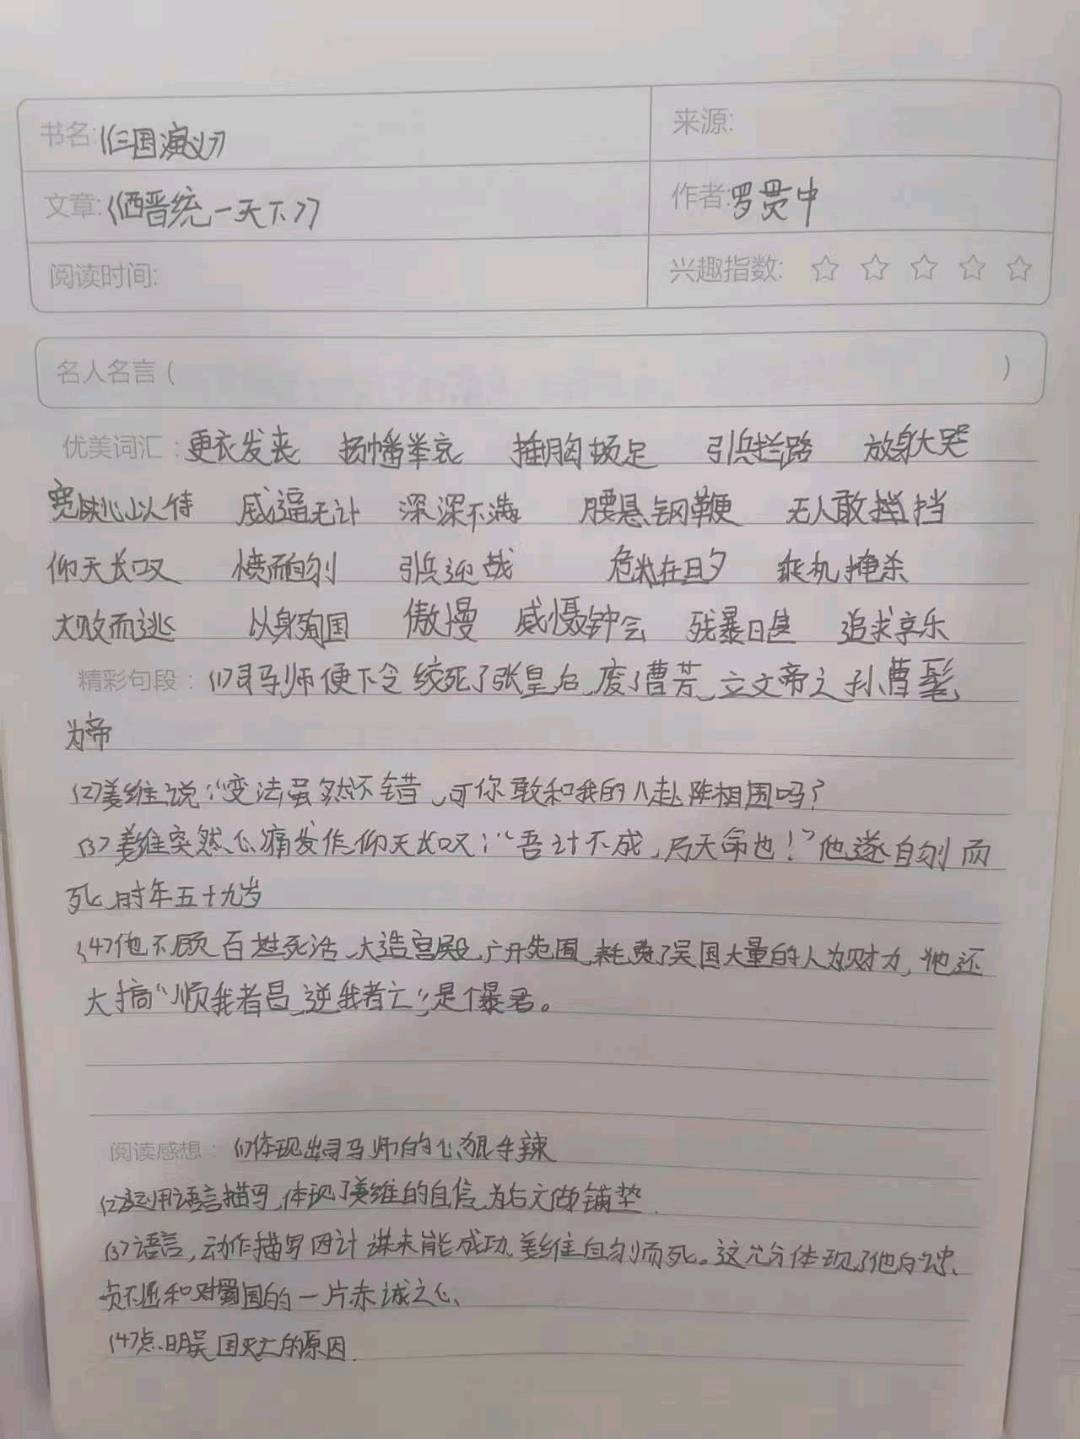 书名:《三国演义》
来源:
文章:《西晋统一天下》
作者:罗贯中
阅读时间:
兴趣指数: ☆ ☆ ☆ ☆ ☆
名人名言 ( )
优美词汇: 更衣发丧 扬幡举哀 捶胸顿足 引兵拦路 放声大哭
宽心以待 威逼无计 深深不满 腰悬钢鞭 无人敢拦挡
仰天长叹 愤而自刎 引兵迎战 危在旦夕 乘机掩杀
大败而逃 以身殉国 傲慢 威慑钟会 残暴日甚 追求享乐
精彩句段: (1)司马师便下令绞死了张皇后,废了曹芳,立文帝之孙曹髦
为帝
(2)姜维说:“变法虽然不错,可你敢和我的八卦阵相围吗?
(3)姜维突然心痛发作,仰天长叹:“吾计不成,乃天命也!”他遂自刎而
死,时年五十九岁
(4)他不顾百姓死活,大造宫殿,广开苑囿,耗费了吴国大量的人力财力,他还
大搞“顺我者昌,逆我者亡”,是个暴君。
阅读感想: (1)体现出司马师的心狠手辣
(2)运用语言描写,体现了姜维的自信,为后文做铺垫.
(3)语言,动作描写因计谋未能成功,姜维自刎而死。这充分体现了他的忠
贞不屈和对蜀国的一片赤诚之心
(4)点明吴国灭亡的原因.